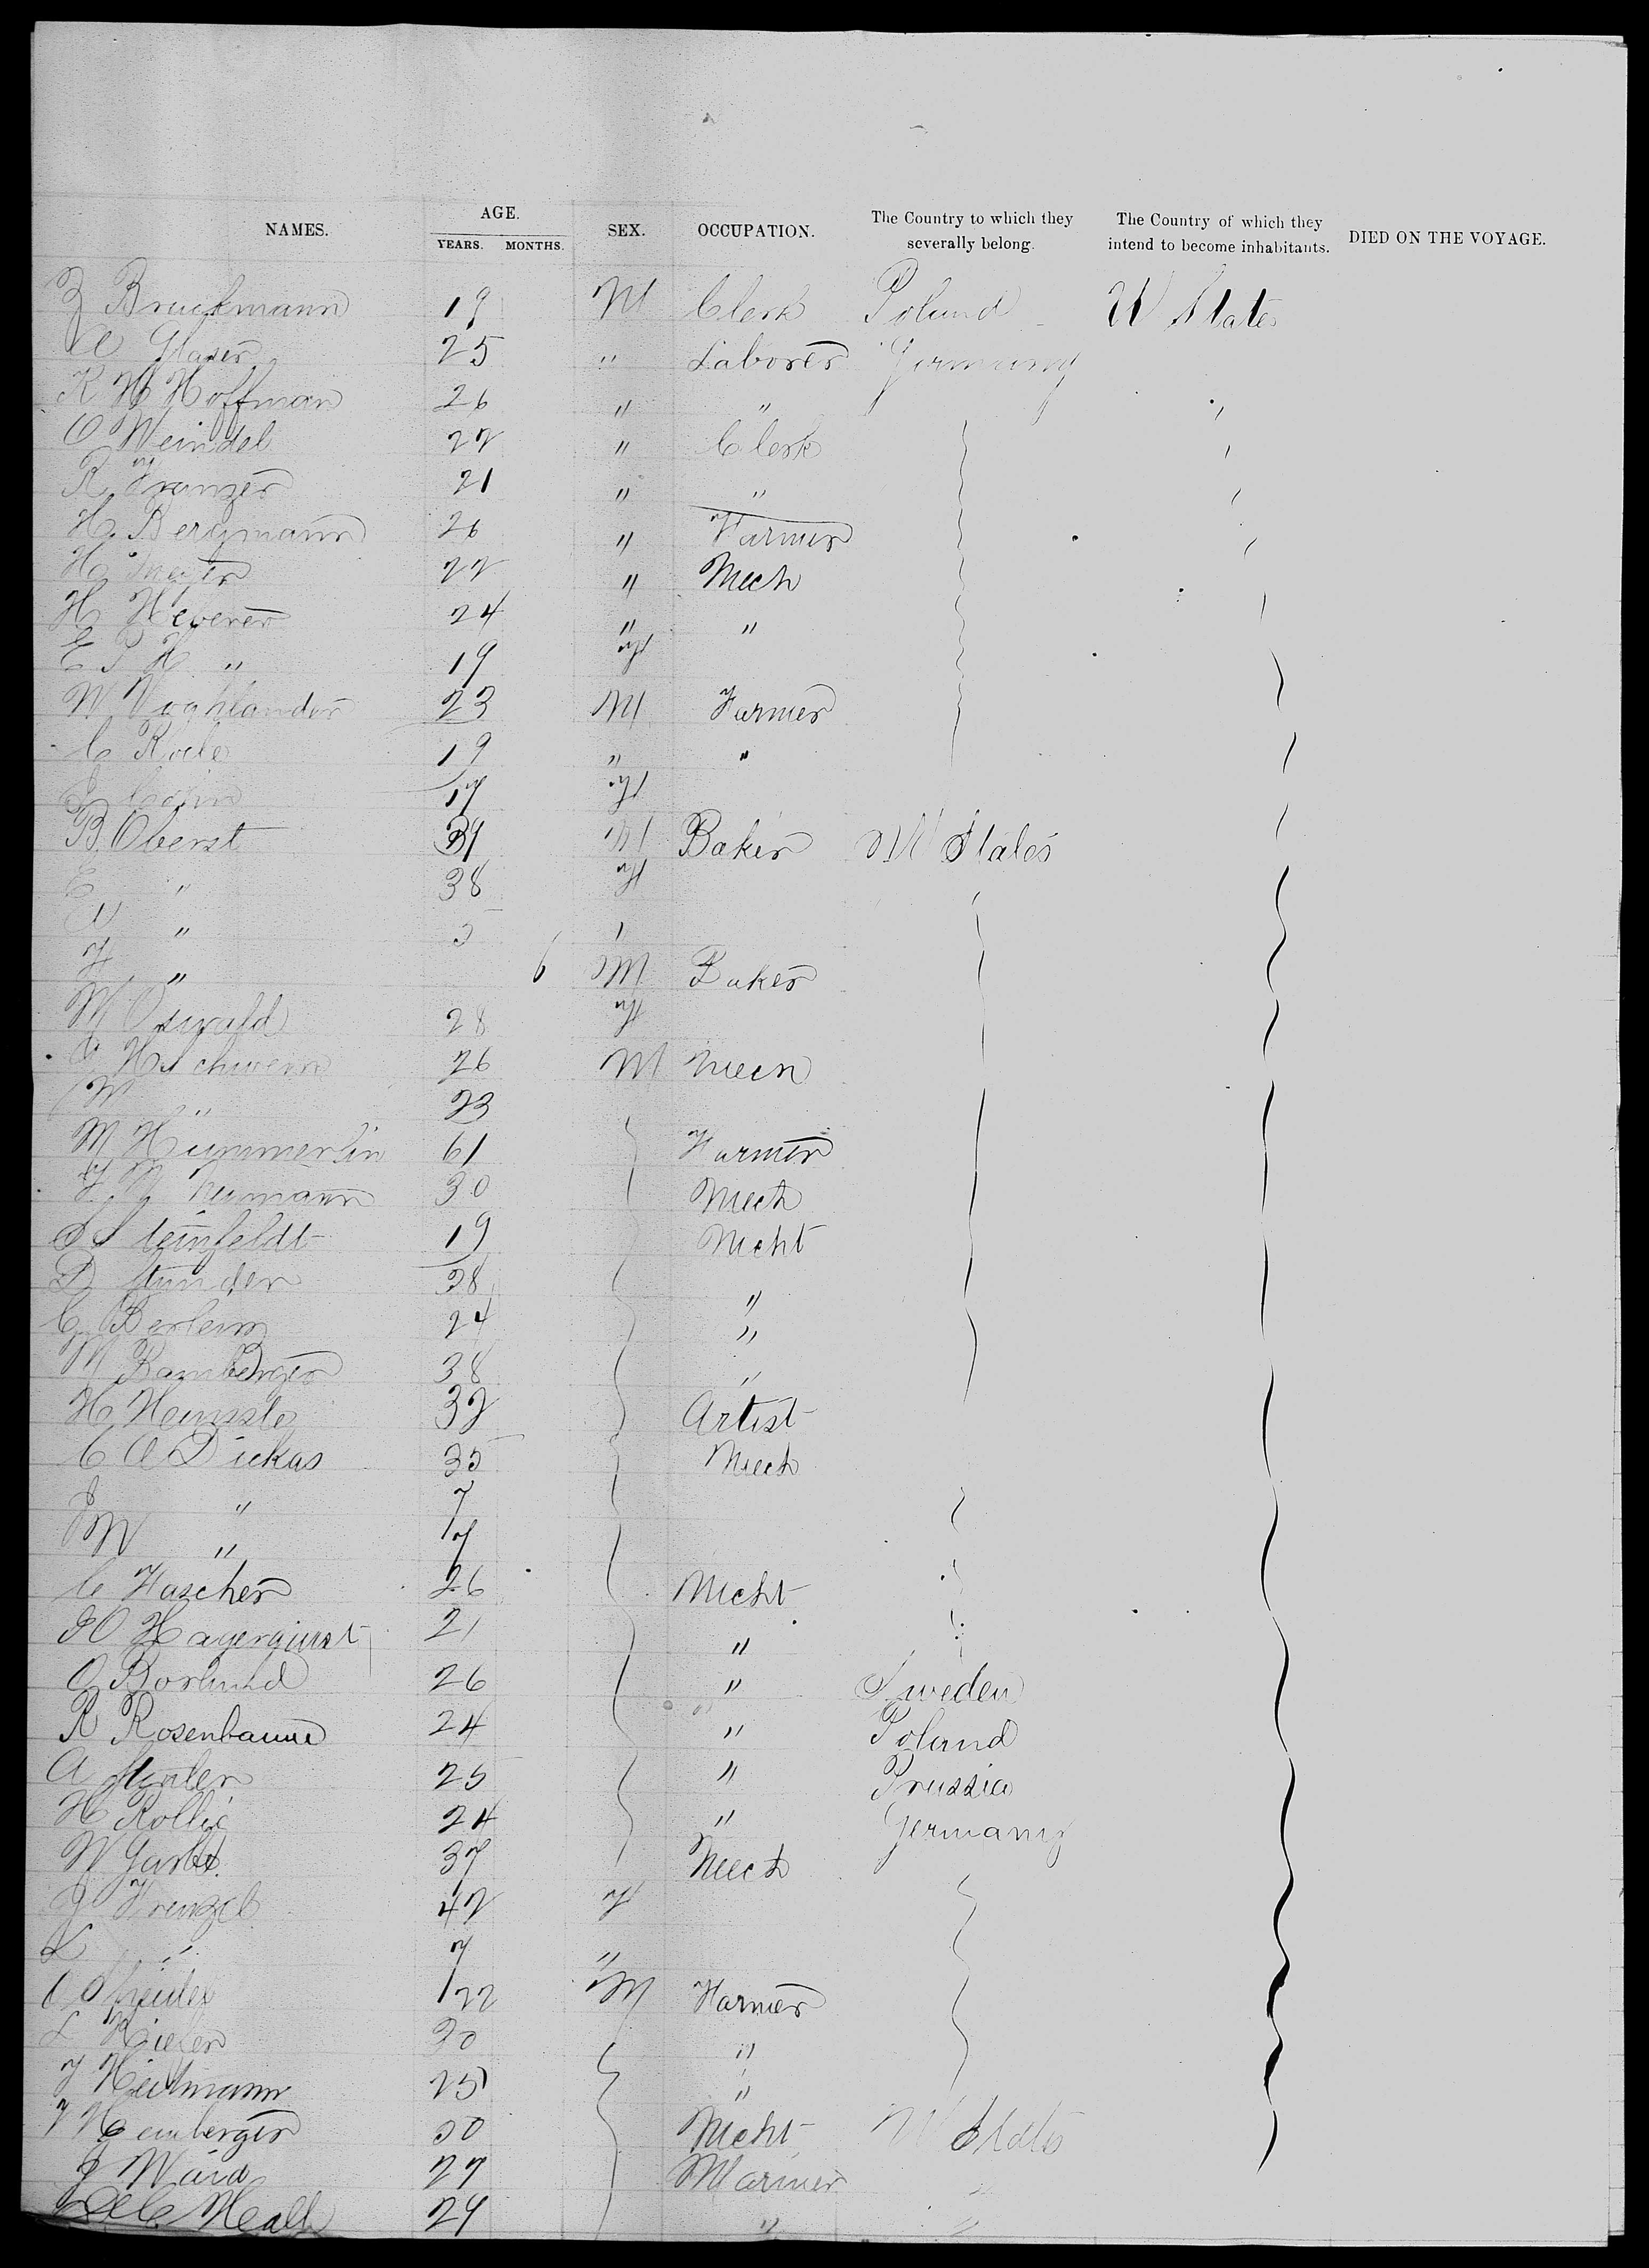 NAMES. AGE. YEARS. MONTHS. SEX. OCCUPATION. The Country to which they severally belong. The Country of which they intend to become inhabitants. DIED ON THE VOYAGE.
Bruckmann 19 M Clerk Poland U States
Glaser 25 " Laborer Germany
K H Hoffman 26 " " "
O Weindel 22 " Clerk
R Franzer 21 " "
H Bergmann 26 " Farmer
H Meyer 22 " Mech
H Heverer 24 " "
E P H " 19 F
W Voghlander 23 M Farmer
C Rode 19 " "
Cohn 17 F
B Oberst 39 M Baker U States
E " 38 F
" 5
F " 6 M Baker
M Oswald 28 F
H Schwenn 26 M Mech
" 23
M Hummerlin 61 Farmer
Neumann 30 Mech
S Steinfeldt 19 Mcht
D 28 "
C Berlein 24 "
M Bamberger 38 "
H Heinssle 32 Artist
C A Dickas 35 Mech
" 7
M " 17
C Fascher 26 Mcht
Hagerquist 21 "
O Borlund 26 " Sweden
R Rosenbaum 24 " Poland
A 25 " Prussia
H Rollig 24 " Germany
W Garbe 37 Mech
J Frenzel 42 F
L " 7 "
22 M Farmer
L 30 "
F Heitmann 25 "
Hemberger 30 Mcht U States
J Ward 27 Mariner
Heall 29 "